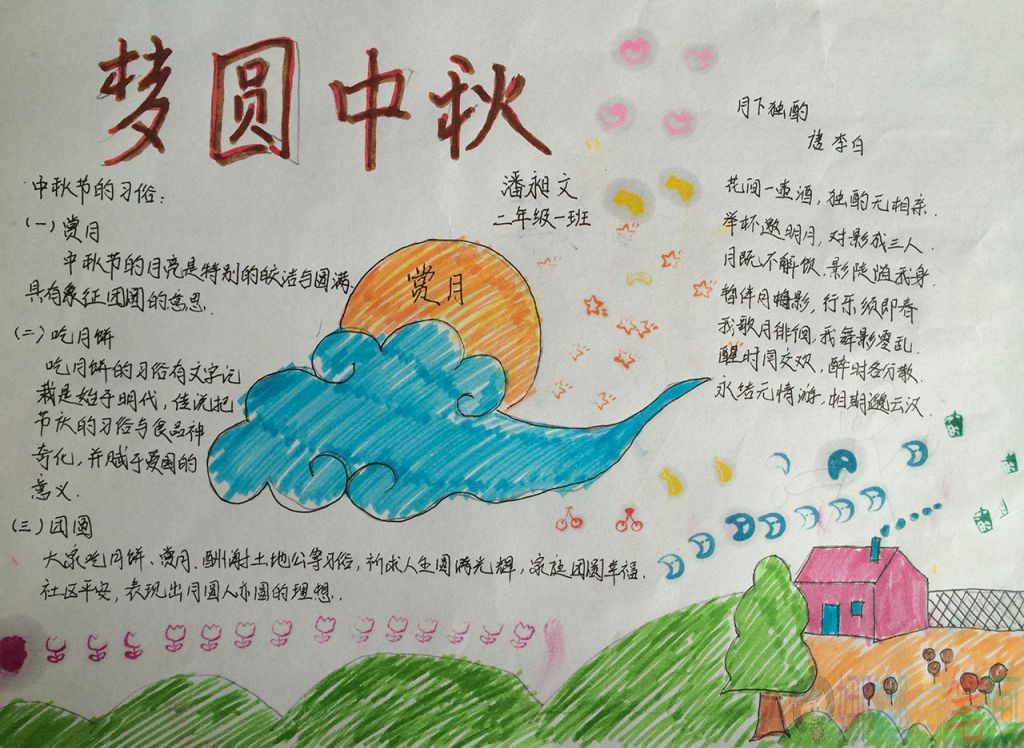 梦圆中秋
潘昶文
二年级一班
中秋节的习俗：
(一)赏月
中秋节的月亮是特别的皎洁与圆满，
具有象征团圆的意思．
(二)吃月饼
吃月饼的习俗有文字记
载是始于明代，传说把
节庆的习俗与食品神
奇化，并赋于爱国的
意义．
(三)团圆
大家吃月饼、赏月、酬谢土地公等习俗，祈求人生圆满光辉，家庭团圆幸福．
社区平安，表现出月圆人亦圆的理想．
赏月
月下独酌
唐 李白
花间一壶酒，独酌无相亲．
举杯邀明月，对影成三人．
月既不解饮，影徒随我身
暂伴月将影，行乐须即春
我歌月徘徊，我舞影零乱．
醒时同交欢，醉时各分散．
永结无情游，相期邈云汉．